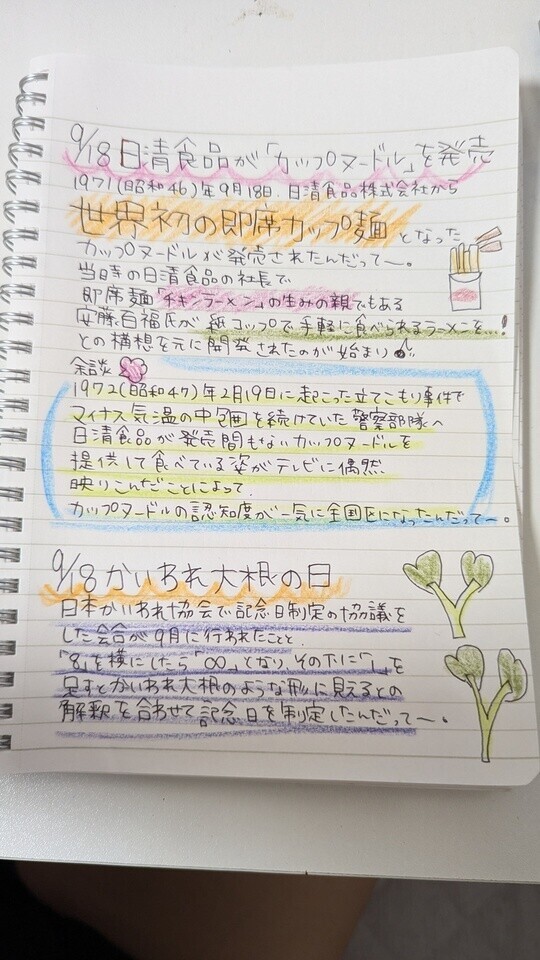 9/18 日清食品が「カップヌードル」を発売
1971(昭和46)年9月18日、日清食品株式会社から
世界初の即席カップ麺となった
カップヌードルが発売されたんだって〜。
当時の日清食品の社長で
即席麺「チキンラーメン」の生みの親でもある
安藤百福氏が紙コップで手軽に食べられるラーメンを…!
との構想を元に開発されたのが始まり
余談
1972(昭和47)年2月19日に起こった立てこもり事件で
マイナス気温の中包囲を続けていた警察部隊へ
日清食品が発売間もないカップヌードルを
提供して食べている姿がテレビに偶然
映りこんだことによって、
カップヌードルの認知度が一気に全国区になったんだって〜。
9/18 かいわれ大根の日
日本かいわれ協会で記念日制定の協議を
した会合が9月に行われたこと、
「8」を横にしたら「∞」となり、その下に「|」を
足すとかいわれ大根のような形に見えるとの
解釈を合わせて記念日を制定したんだって〜。